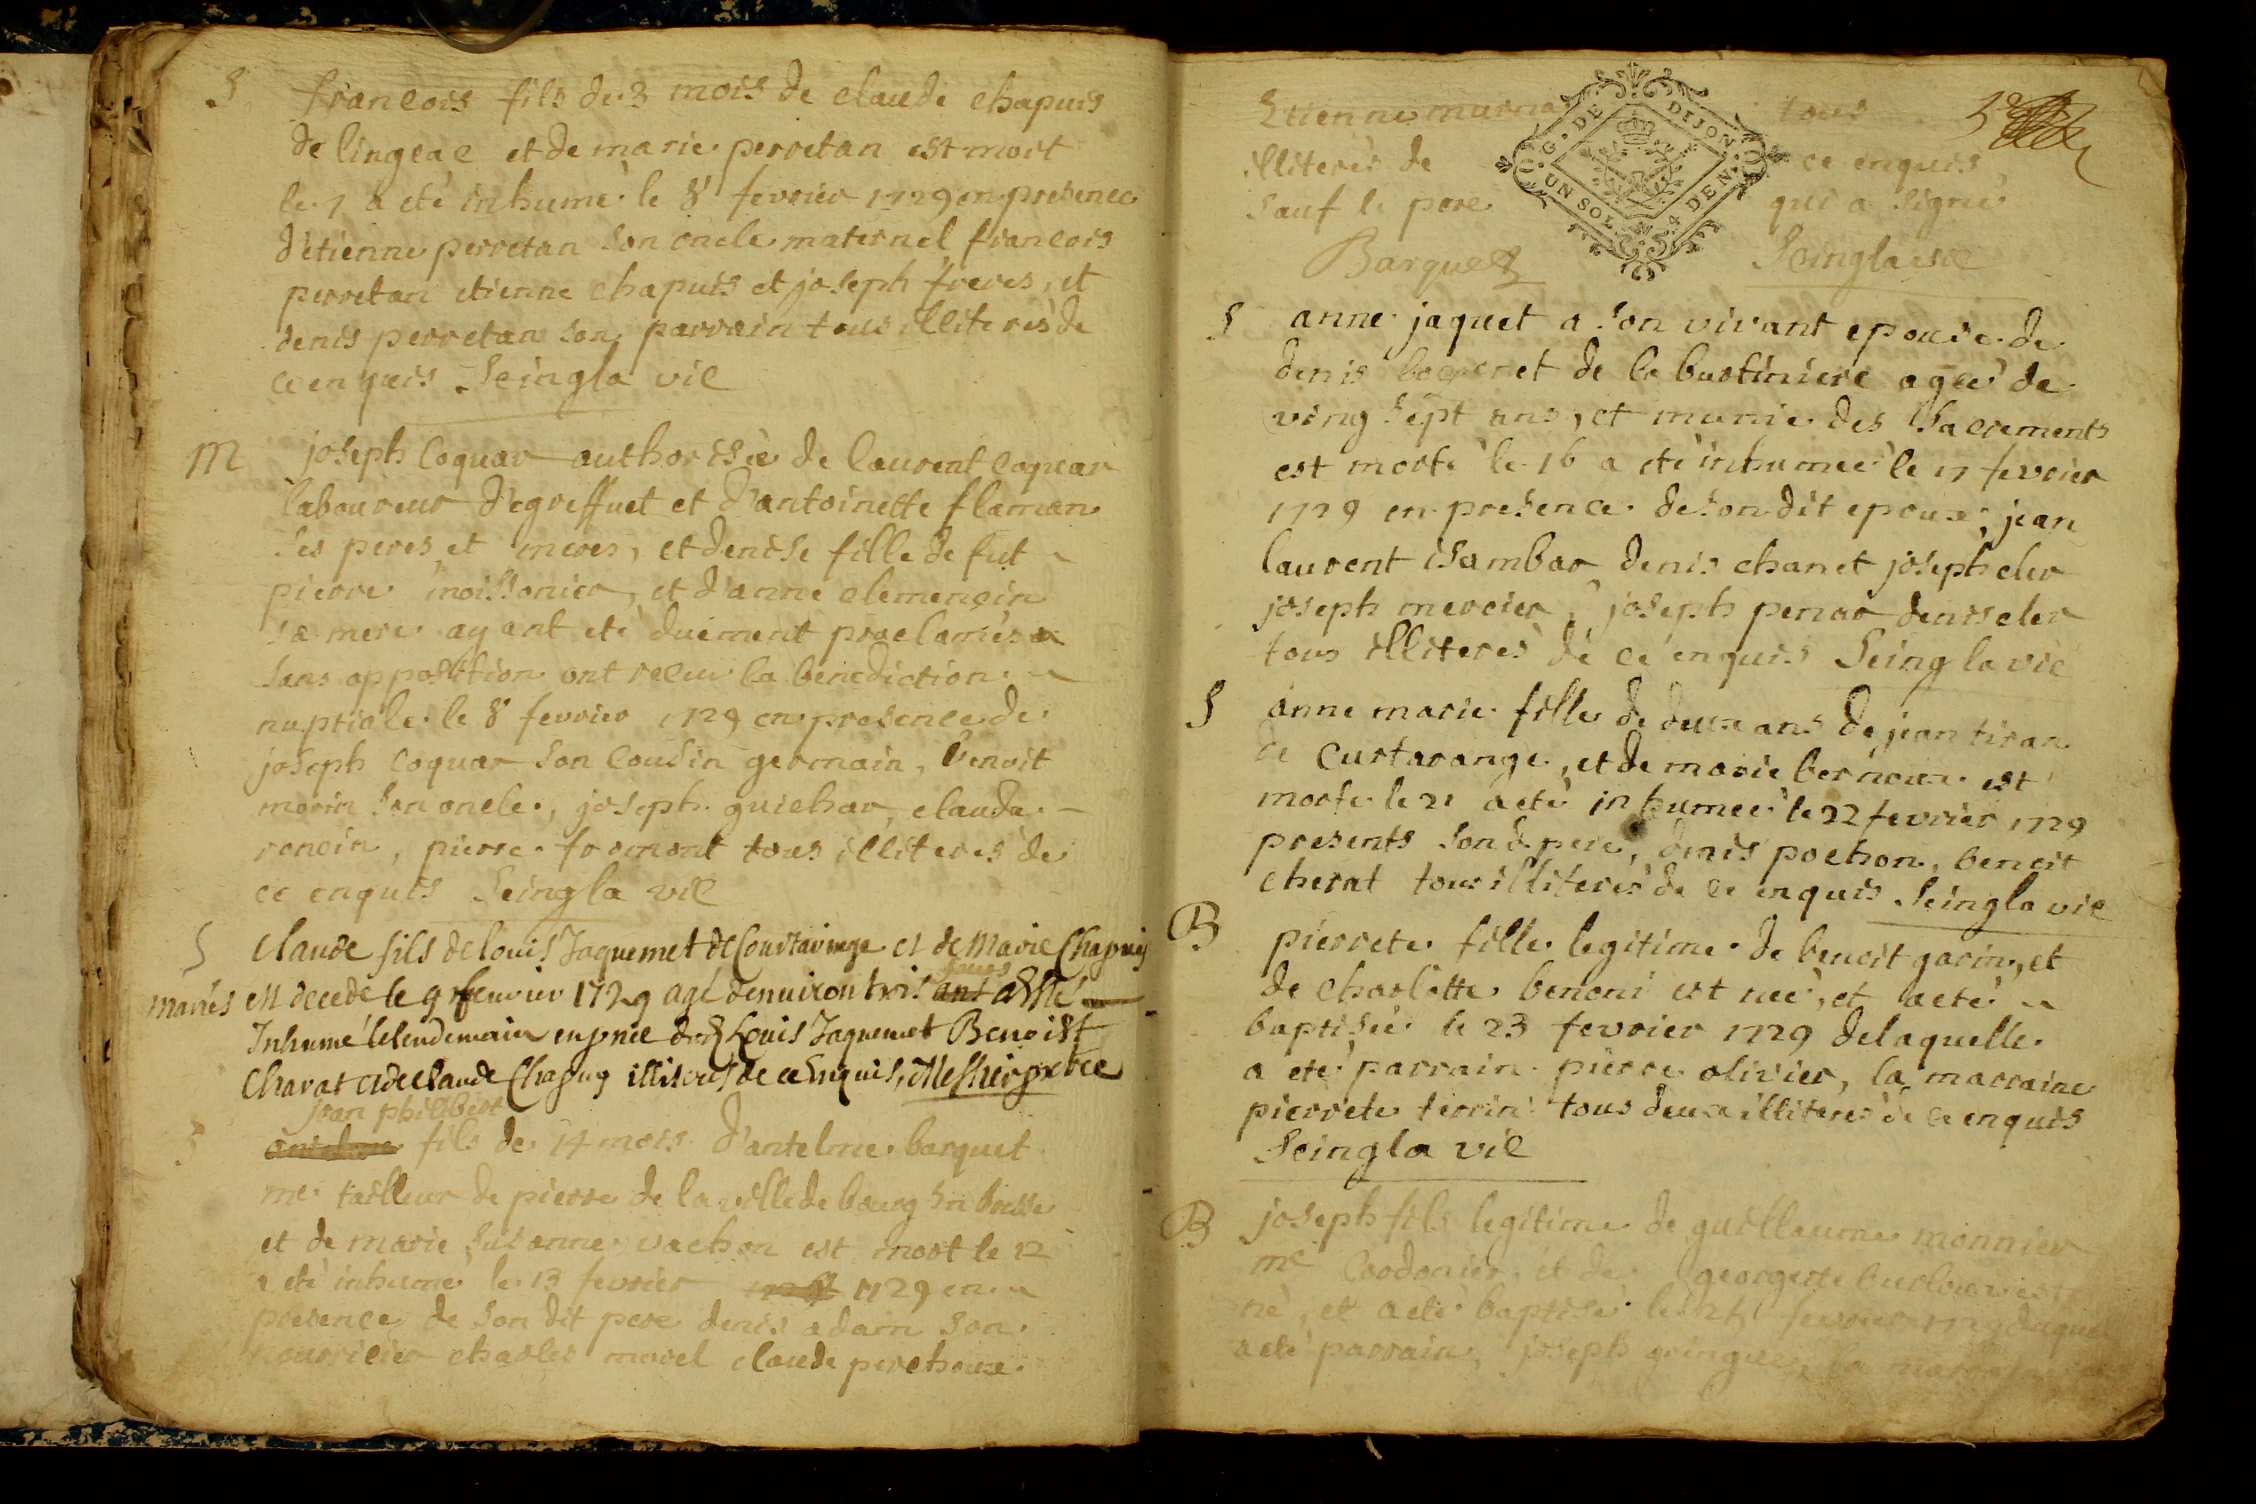 S francois fils de 3 mois de claude chapuis
de lingeac et de marie perretan est mort
le 7 a eté inhumé le 8 fevrier 1729 en presence
d'etienne perretan son oncle maternel francois
perretan etienne chapuis et joseph freres, et
denis perretan son parrain tous illiterés de
ce enquis Seingla vic
M joseph coquar authorisée de laurent coquar
laboureur d'egreffuet et d'antoinette flaman
ses peres et meres, et denise fille de fut
pierre moissonier, et d'anne clemencin
sa mere ayant eté duement proclamés
sans opposition ont receu la benediction
nuptiale le 8 fevrier 1729 en presence de
joseph coquar son cousin germain, benoit
morin son oncle, joseph guichar, claude
roncin, pierre fromont tous illiterés de
ce enquis Seingla vic
S Claude fils de louis Jaquemet de Courtaringe et de Marie Chapuis
mariés est decede le 9 feuvrier 1729 agé denuiron trois ans jours a Esté
Inhumé le lendemain en pnce dud Louis Jaquemet Benoist
Charat et de Claude Chapuy illiterés de ce Enquis,
jean philibert
S antelme fils de 14 mois d'antelme barquet
me tailleur de pierre de la ville de bourg en bresse
et de marie susanne vachon est mort le 12
a eté inhumé le 13 fevrier 1729 en
presence de son dit pere denis adam son
nourricier charles morel claude perchoux
Etienne tous
illiterés de ce enquis
sauf le pere qui a signé
Barquet Seingla vic
G. DE DIJON
UN SOL 4 DEN.
S anne jaquet a son vivant epouse de
denis de la bustiniere agée de
ving sept ans, et munie des Sacrements
est morte le 16 a eté inhumée le 17 fevrier
1729 en presence de son dit epoux, jean
laurent isambar denis chanet joseph cler
joseph mercier, joseph penar denis cler
tous illiterés de ce enquis Seingla vic
S anne marie fille de deux ans de jean tiran
de Curtarange, et de marie bernoux est
morte le 21 a eté inhumée le 22 fevrier 1729
presents son d pere, denis pochon, benoit
cherat tous illiterés de ce enquis Seingla vic
B pierrete fille legitime de benoit garin, et
de charlotte benoni est née, et a eté
baptisée le 23 fevrier 1729 de laquelle
a eté parrain pierre olivier, la marraine
pierrete terrin tous deux illiterés de ce enquis
Seingla vic
B joseph fils legitime de guillaume monnier
me Cordonier, et de georgette est
né, et a eté baptisé le 24 fevrier 1729 duquel
a eté parrain, joseph la